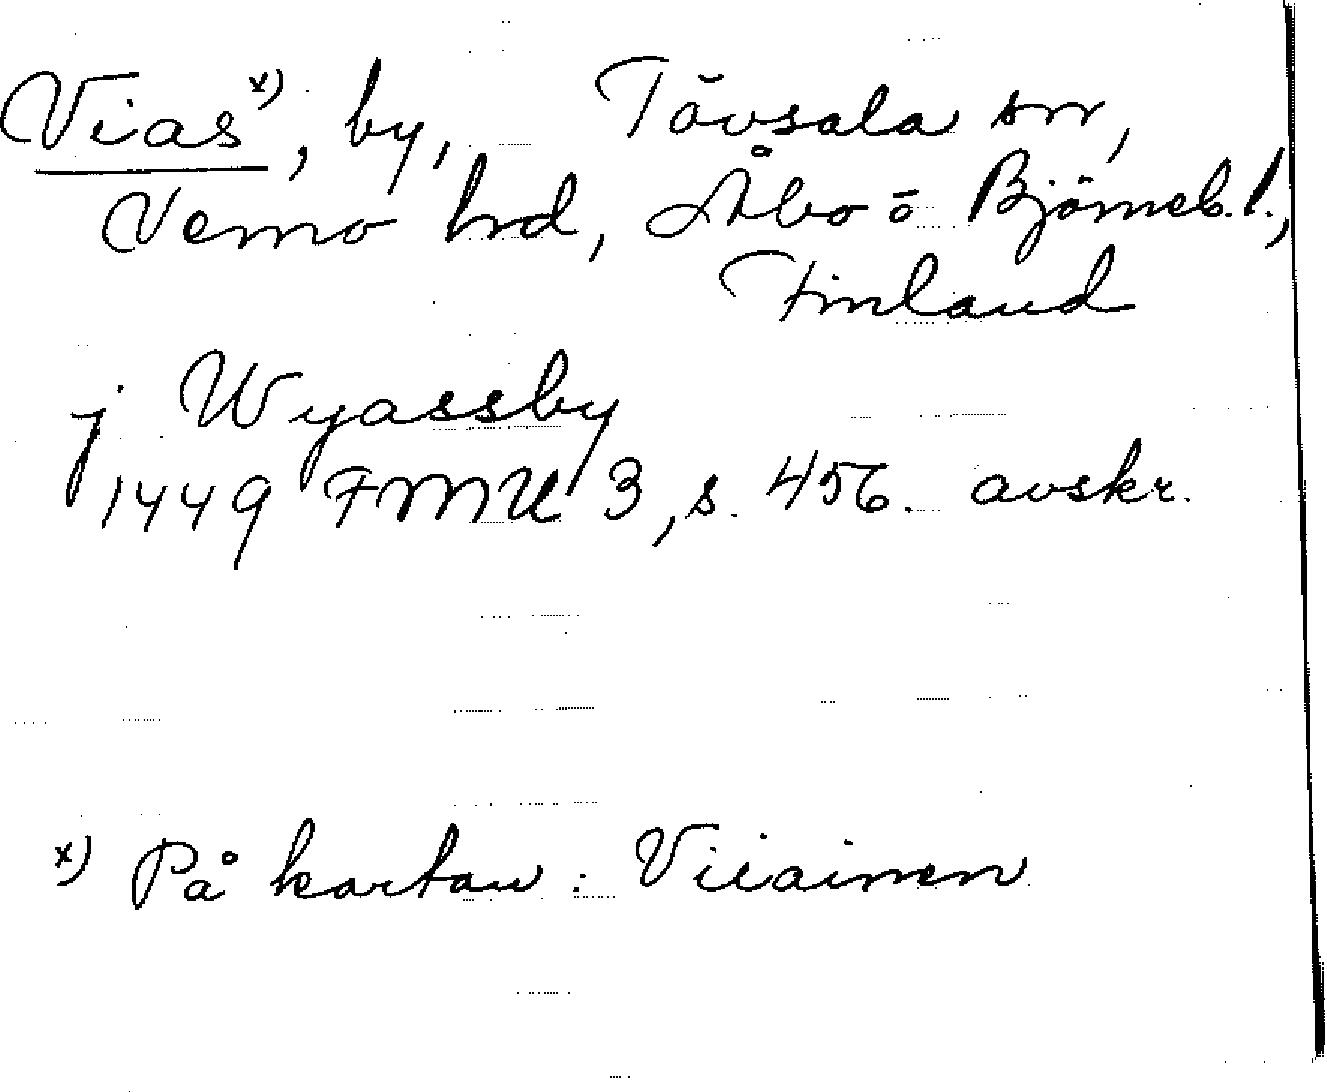 Vias x), by, Tövsala sn,
Vemo hrd, Åbo o Björneb. l.,
Finland
j Wyassby
1449 FMU 3, s. 456. avskr.
x) På kartan: Viiainen